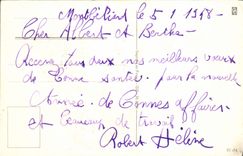 Montbéliard le 5 1 1918 -
Cher Albert et Berthe
Recevez tous deux nos meilleurs vœux
de bonne santé pour la nouvelle
Année de bonnes affaires
et beaucoup de travail
Robert Hélène